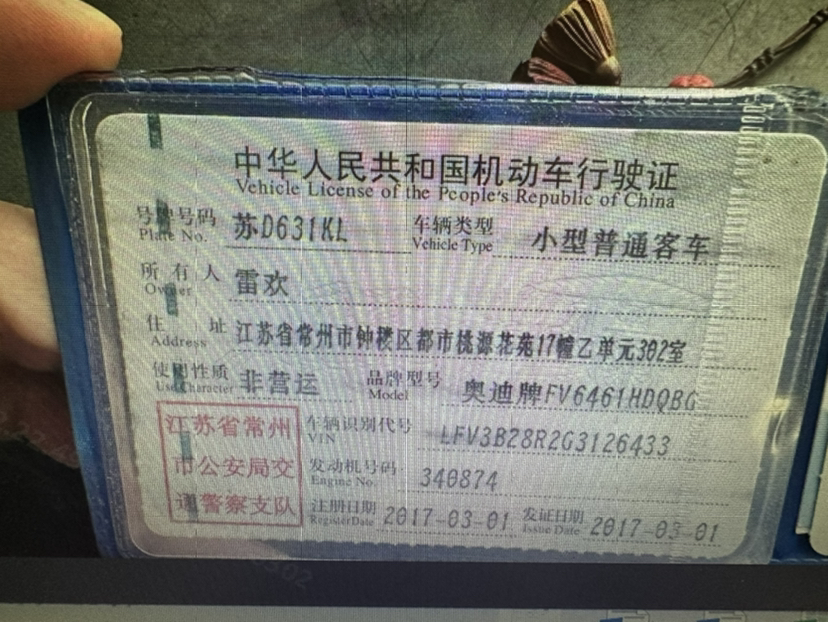 中华人民共和国机动车行驶证
Vehicle License of the People's Republic of China
号牌号码 苏D631KL 车辆类型 小型普通客车
Plate No. Vehicle Type
所有人 雷欢
Owner
住址 江苏省常州市钟楼区都市桃源花苑17幢乙单元302室
Address
使用性质 非营运 品牌型号 奥迪牌FV6461HDQBG
Use Character Model
江苏省常州 车辆识别代号 LFV3B28R2G3126433
VIN
市公安局交 发动机号码 340874
Engine No.
通警察支队 注册日期 2017-03-01 发证日期 2017-03-01
Register Date Issue Date